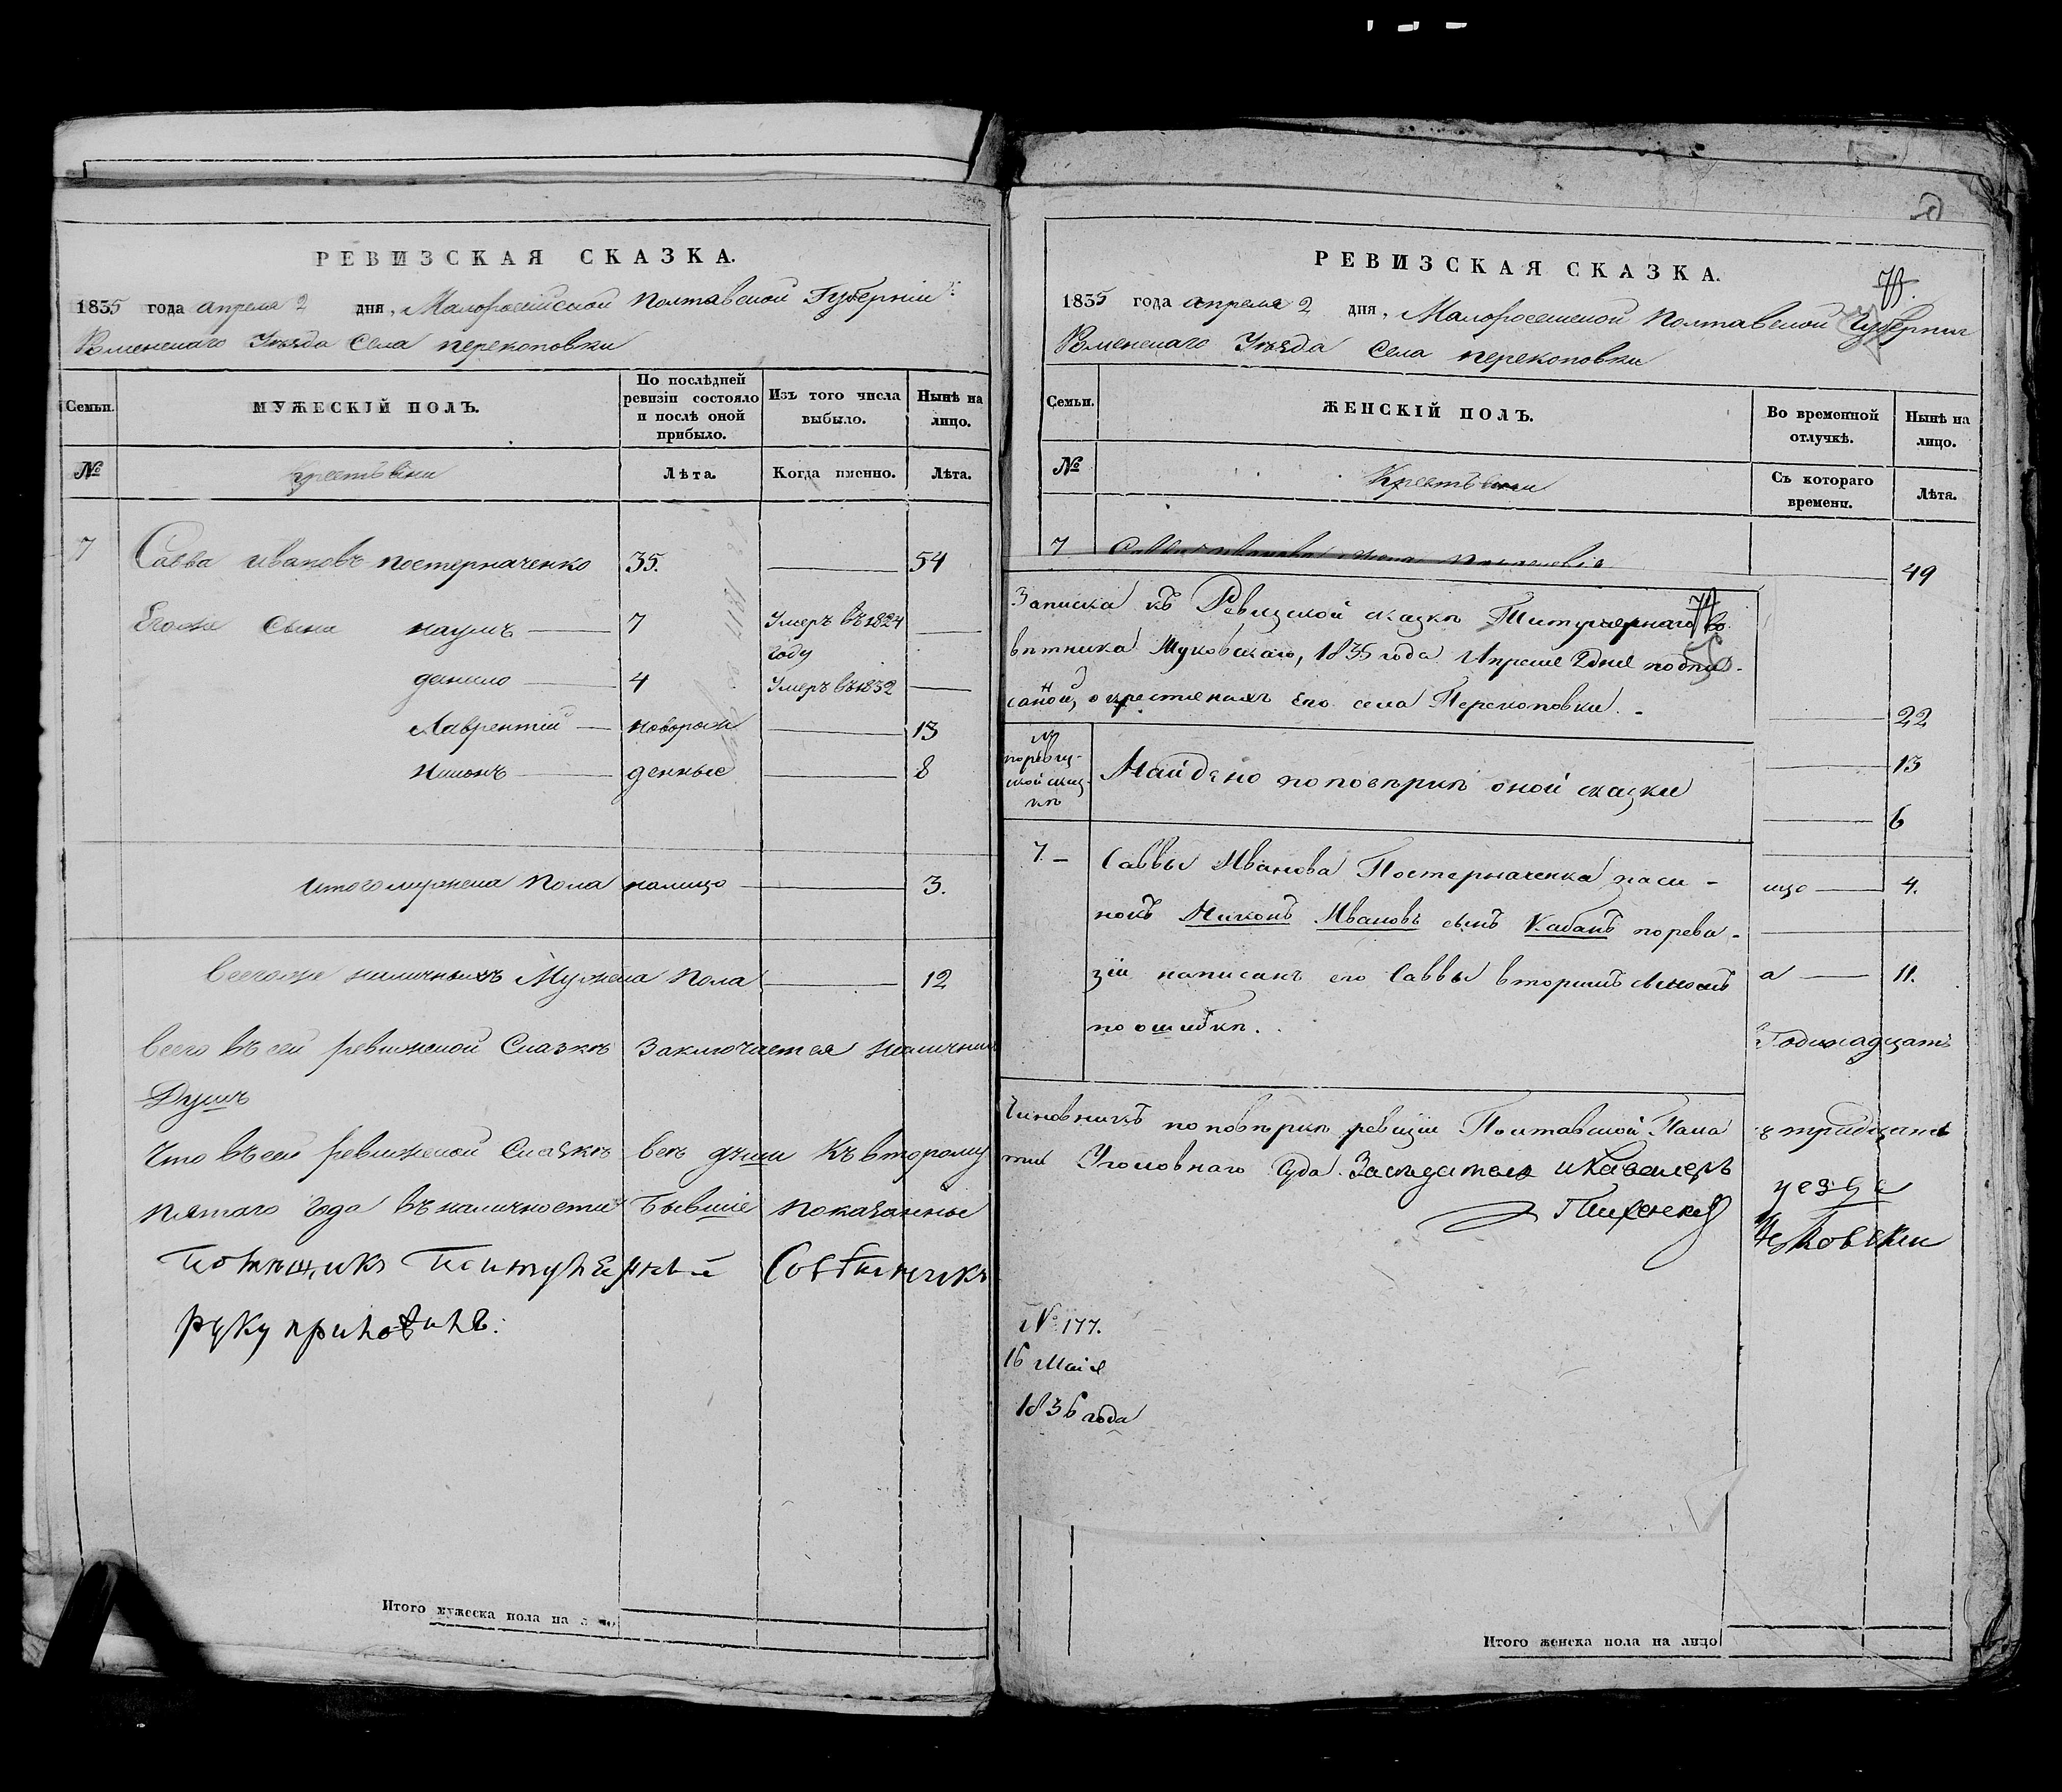 РЕВИЗСКАЯ СКАЗКА.
1835 года апреля 2 дня, Малоросейской полтавской Губернии
Роменскаго Уезда Села перекоповки
Семьи.
МУЖЕСКІЙ ПОЛЪ.
По послѣдней ревизіи состояло и послѣ оной прибыло.
Изъ того числа выбыло.
Нынѣ на лицо.
№
крестьяни
Лѣта.
Когда именно.
Лѣта.
7 Савва ивановъ постерначенко 35. 54
Егоже сыни наумъ 7 Умеръ въ 1824 году
данило 4 Умеръ въ 1832
Лаврентій новорож 13
денные 8
итого мужеска пола налицо 3.
всегоже наличныхъ Мужеска Пола 12
всего въ сей ревижской Сказкѣ Заключается наличных
Душъ
Что въ сей ревижской Сказкѣ всѣ души къ второму
пятаго года въ наличности бывшіе показанные
Помѣщикъ Титулярный Совѣтникъ
руку приложилъ.
Итого мужеска пола на лицо
РЕВИЗСКАЯ СКАЗКА.
1835 года апреля 2 дня, Малоросейской Полтавской Губернии
Роменскаго Уезда Села перекоповки
Семьи.
ЖЕНСКІЙ ПОЛЪ.
Во временной отлучкѣ.
Нынѣ на лицо.
№
Крестьянки
Съ котораго времени.
Лѣта.
7 жена 49
Записка къ Ревизской сказкѣ Титулярнаго Со-
вѣтника Жуковскаго, 1835 года Апреля 2 дня подпи-
саной, о крестянахъ его села Перекоповки.
22
№ по ревиз-
ской сказ-
кѣ
Найдено по повѣркѣ оной сказки
13
6
7. Саввы Иванова Постерначенка паси-
нокъ Никонъ Ивановъ сынъ Кабанъ по реви-
зіи написанъ его Саввы вторымъ сыномъ
по ошибкѣ.
ицо 4.
а 11.
Чиновникъ по повѣркѣ ревизіи Полтавской Пала
ты Уголовнаго Суда Заседатель и Кавалеръ
№ 177.
16 Маія
1836 года
Итого женска пола на лицо